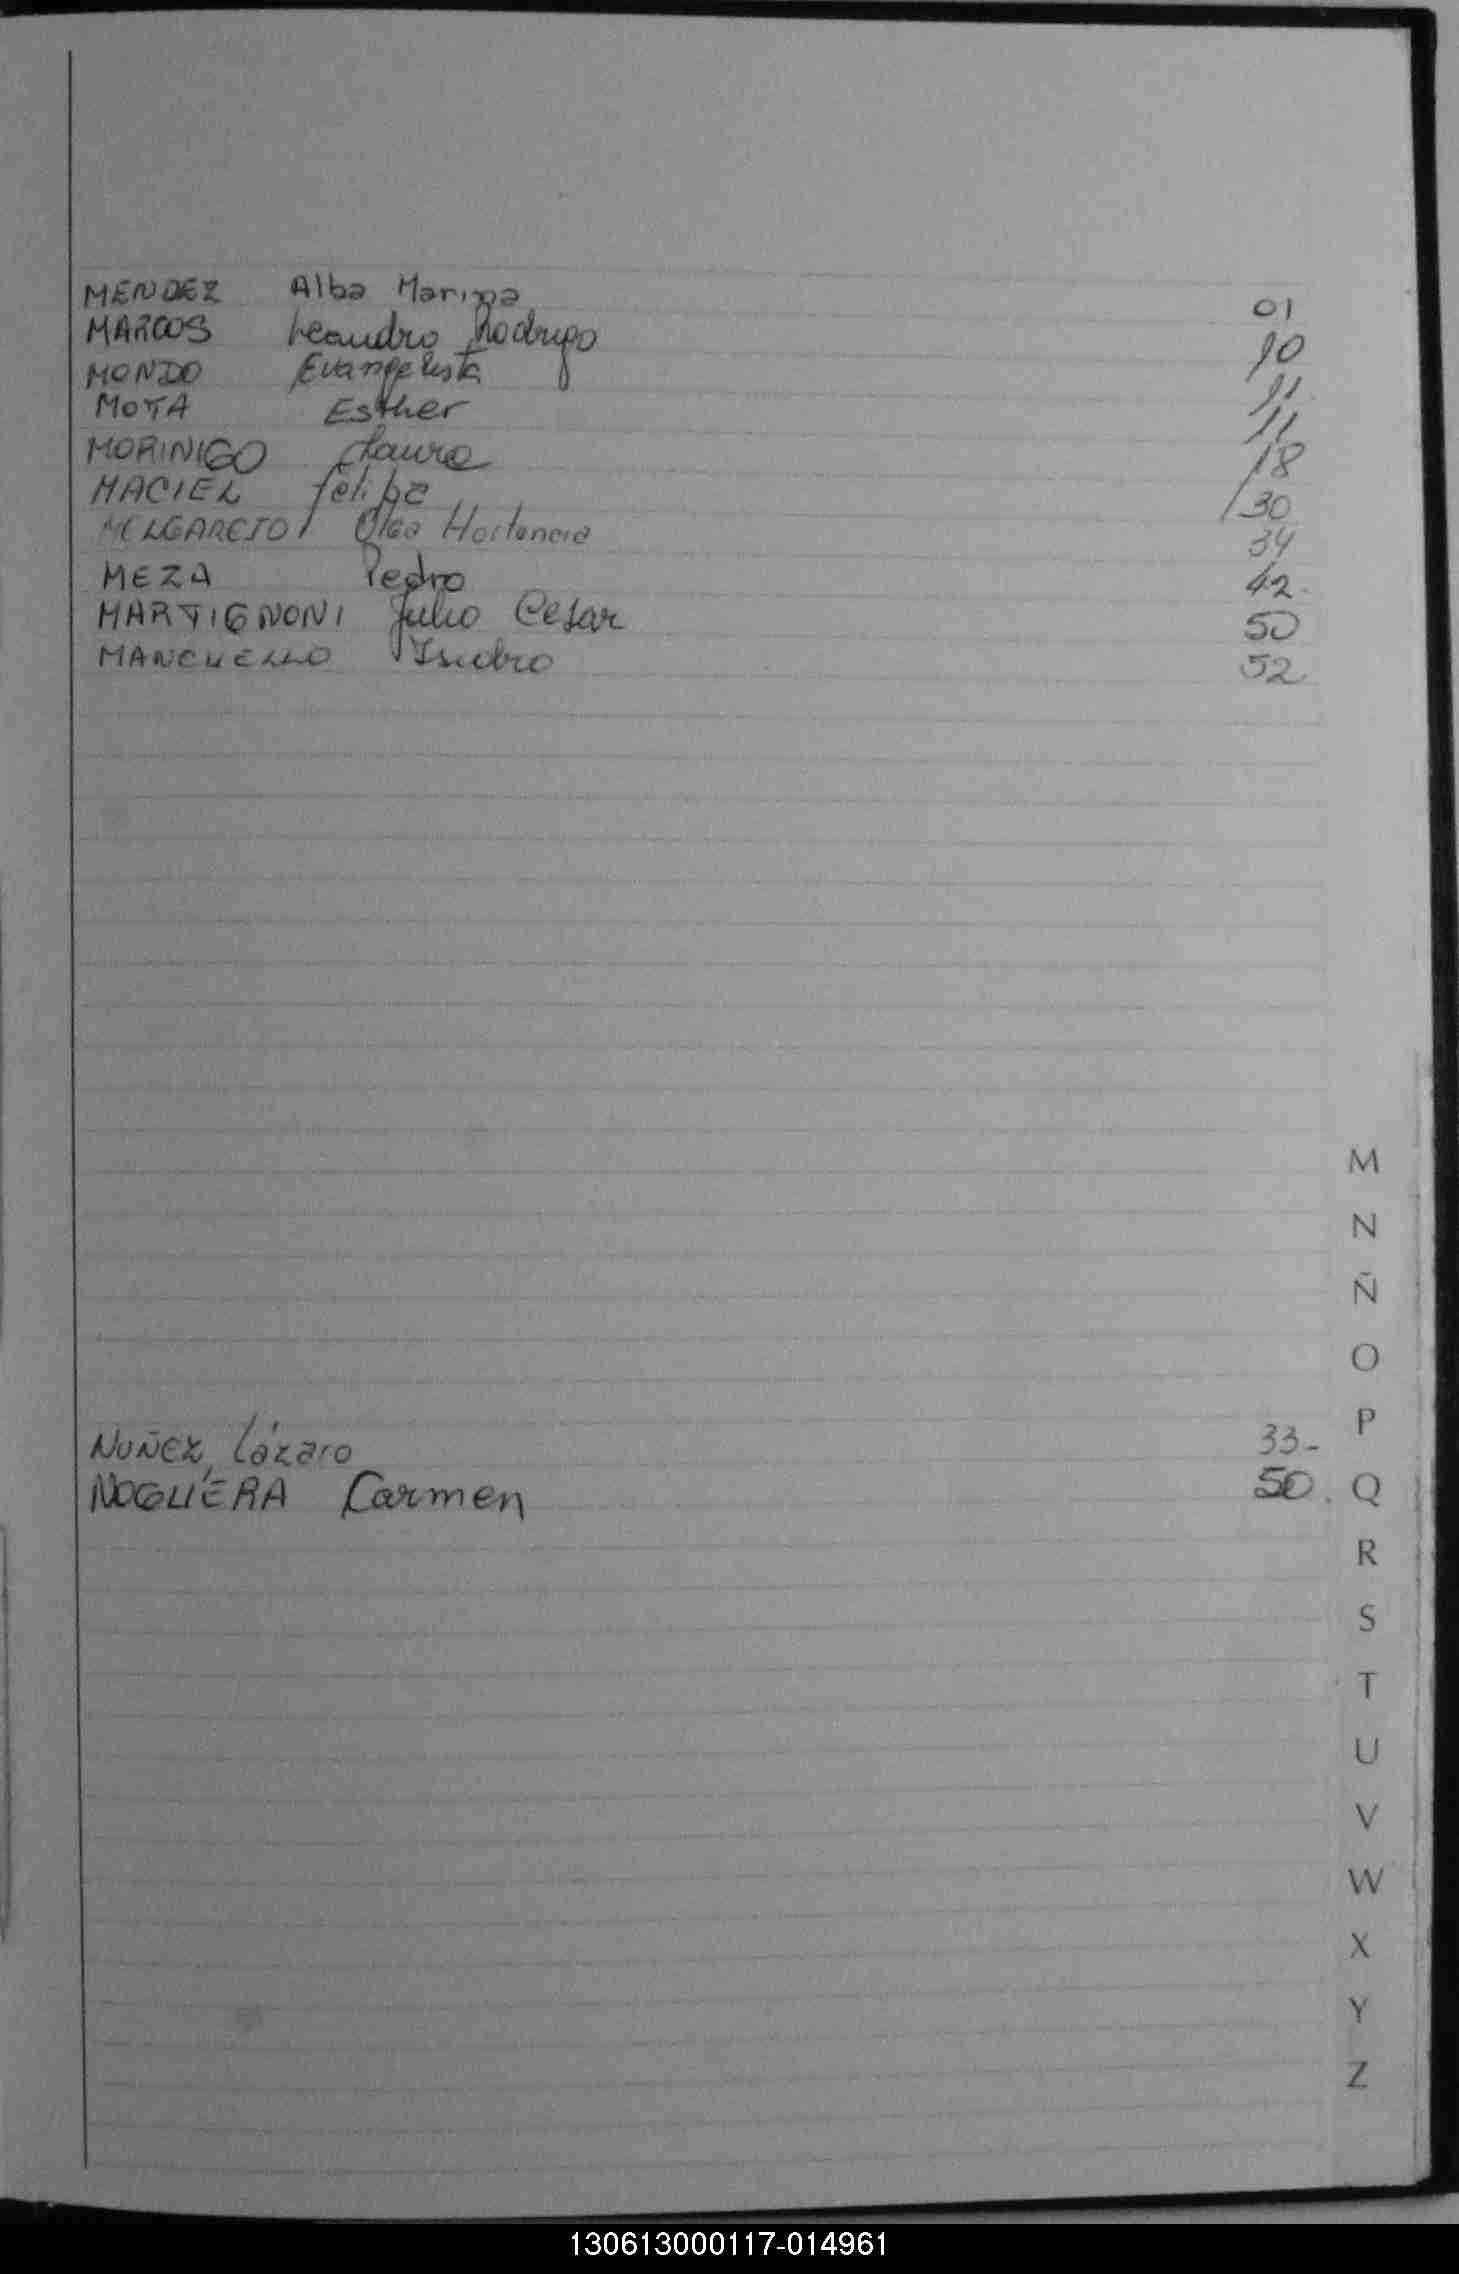 MENDEZ Alba Marina 01
MARCOS Leandro Rodrigo 10
MONDO Evangelista 11
MOTA Esther 11
MORINIGO Laura 18
MACIEL felipa 30
MELGAREJO Olga Hortencia 34
MEZA Pedro 42.
MARTIGNONI Julio Cesar 50
MANCUELLO Isidro 52
M
N
Ñ
O
P
NUÑEZ, Lázaro 33-
NOGUERA Carmen 50.
Q
R
S
T
U
V
W
X
Y
Z
130613000117-014961